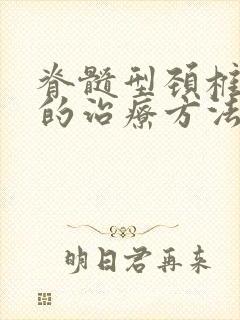 脊髓型颈椎
的治疗方法
明日君再来